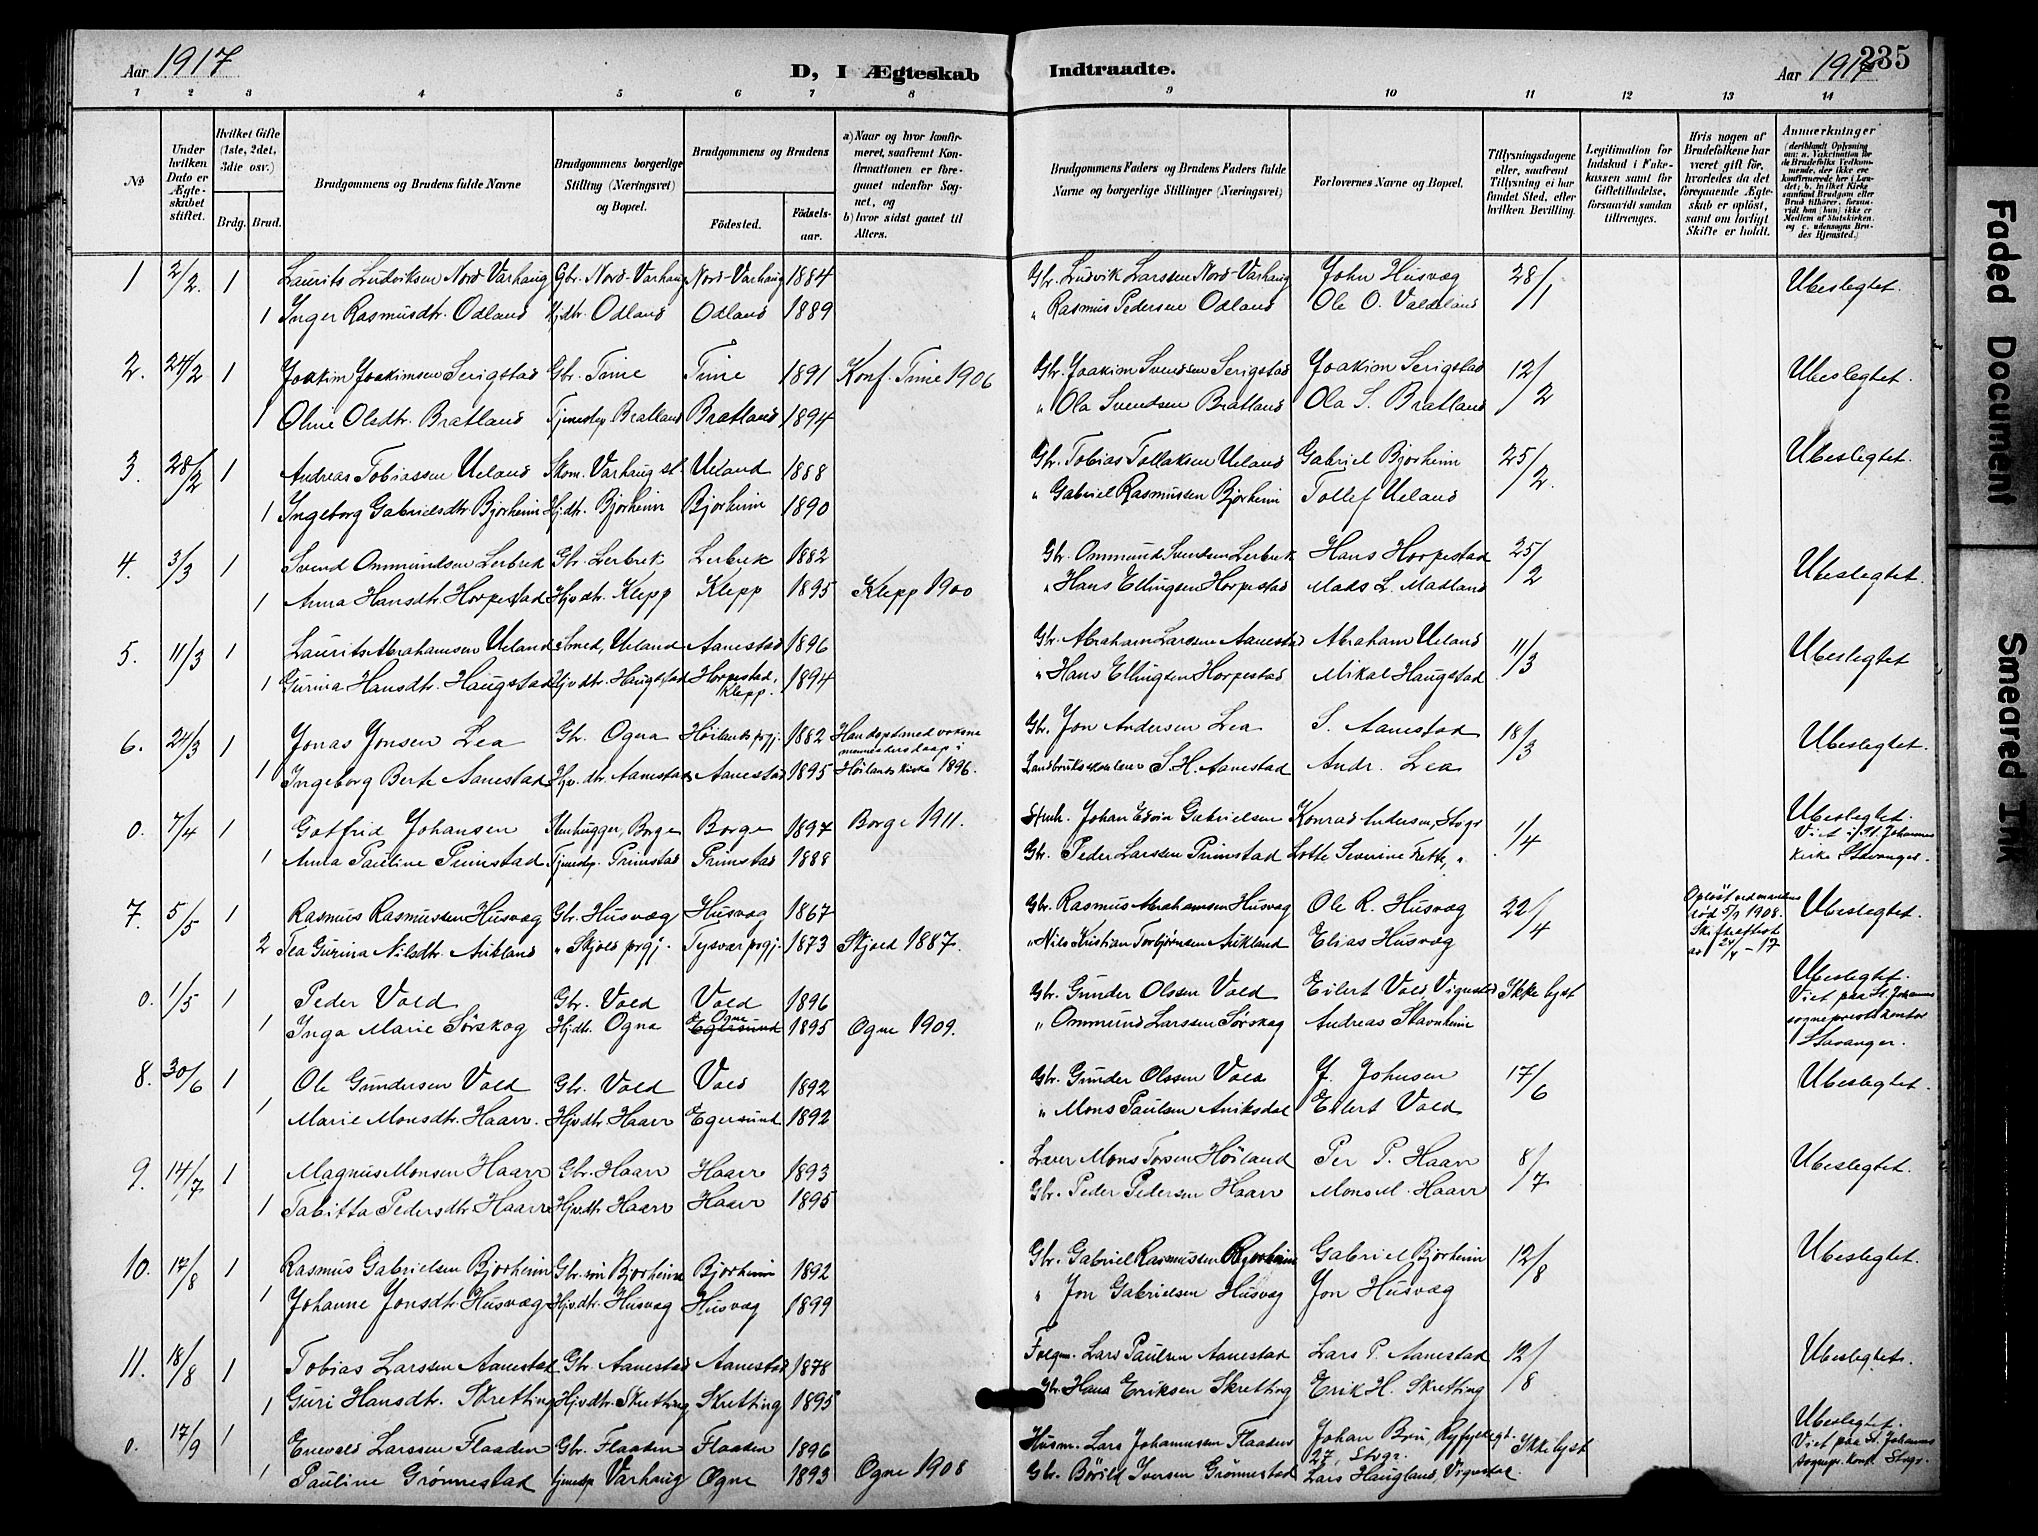 Aar 1917
D, I Ægteskab
Indtraadte.
Aar 1917
235
1 2 3 4 5 6 7 8 9 10 11 12 13 14
№
Under hvilken Dato er Ægteskabet stiftet.
Hvilket Gifte (1ste, 2det, 3die osv.)
Brdg. Brud.
Brudgommens og Brudens fulde Navne
Brudgommens borgerlige Stilling (Næringsvei) og Bopæl.
Brudgommens og Brudens
Fødested.
Fødselsaar.
a) Naar og hvor konfirmeret, saafremt Konfirmationen er foregaaet udenfor Sognet, og
b) hvor sidst gaaet til Alters.
Brudgommens Faders og Brudens Faders fulde Navne og borgerlige Stillinger (Næringsvei)
Forlovernes Navne og Bopæl.
Tillysningsdagene eller, saafremt Tillysning ei har fundet Sted, efter hvilken Bevilling.
Legitimation for Indskud i Enkekassen samt for Giftetilladelse, forsaavidt saadan tiltrænges.
Hvis nogen af Brudefolkene har været gift før, hvorledes da det foregaaende Ægteskab er opløst, samt om lovligt Skifte er holdt.
Anmerkninger (deriblandt Oplysning om: a. Vakcination for de Brudefolks Vedkommende, der ikke ere konfirmerede her i Landet; b. hvilket Kirkesamfund Brudgom eller Brud tilhører, forsaavidt han (hun) ikke er Medlem af Statskirken, og c. udensogns Brudes Hjemsted.)
1 2/2. 1 Laurits Ludviksen Nord-Varhaug Gbr. Nord-Varhaug Nord-Varhaug 1884 Gbr. Ludvik Larssen Nord-Varhaug John Husvæg 28/1 Ubeslegtet.
1 Inger Rasmusdtr. Odland Hjdtr. Odland Odland 1889 " Rasmus Pedersen Odland Ole O. Valdeland
2. 24/2 1 Joakim Joakimsen Serigstad Gbr. Time Time 1891 Konf. Time 1906 Gbr. Joakim Svendsen Serigstad Joakim Serigstad 12/2 Ubeslegtet.
1 Oline Olsdtr. Bratland Tjenestep. Bratland Bratland 1894 " Ola Svendsen Bratland Ola S. Bratland
3. 28/2 1 Andreas Tobiassen Ueland Skom. Varhaug st. Ueland 1888 Gbr. Tobias Tollaksen Ueland Gabriel Bjorheim 25/2. Ubeslegtet.
1 Ingeborg Gabrielsdtr Bjorheim Hjdtr. Bjorheim Bjorheim 1890 " Gabriel Rasmussen Bjorheim Tollef Ueland
4. 3/3 1 Svend Ommundsen Lerbrek Gbr. Lerbrek Lerbrek 1882 Gbr. Ommund Svendsen Lerbrek Hans Horpestad 25/2 Ubeslegtet.
1 Anna Hansdtr. Horpestad Hjvdtr. Klepp Klepp 1895 Klepp 1900 " Hans Ellingsen Horpestad Mads L. Matland
5. 11/3 1 Laurits Abrahamsen Ueland Smed, Ueland Aanestad 1896 Gbr. Abraham Larssen Aanestad Abraham Ueland 11/3 Ubeslegtet
1 Gurina Hansdtr. Haugstad Hjvdtr. Haugstad Horpestad, Klepp. 1894 " Hans Ellingsen Horpestad Mikal Haugstad
6. 24/3 1 Jonas Jonsen Lea Gbr. Ogna Høilands prgj. 1882 Han døpt med voksne menneskers daap i Høilands kirke 1896. Gbr. Jon Andersen Lea S. Aanestad 18/3 Ubeslegtet.
1 Ingeborg Berte Aanestad Hjv. dtr. Aanestad Aanestad 1895 S. H. Aanestad Andr. Lea
0. 7/4 1 Gotfrid Johansen Stenhugger, Borge Borge 1897 Borge 1911. Stenh. Johan Edvin Gabrielsen Konrad Andersen, Stvgr 1/4 Ubeslegtet. Viet i St. Johannes Kirke Stavanger.
1 Anna Pauline Primstad Tjenestep. Primstad Primstad 1888 Gbr. Peder Larssen Primstad Lotte Severine Tette, "
7. 5/5 1 Rasmus Rasmussen Husvæg Gbr. Husvæg Husvæg 1867 Gbr. Rasmus Abrahamsen Husvæg Ole R. Husvæg 22/4 Opløst ved mandens død 5/1 1908. Skifteattest av 24/4-17 Ubeslegtet.
2 Tea Gurina Nilsdtr. Aukland " Skjold prgj. Tysvær prgj. 1873 Skjold 1887. " Nils Kristian Torbjørnsen Aukland Elias Husvæg
0. 1/5 1 Peder Vold Gbr. Vold Vold 1896 Gbr. Gunder Olssen Vold Eilert Vold Vigrestad Ikke lyst Ubeslegtet. Viet paa St. Johannes sogneprestkontor Stavanger.
1 Inga Marie Sørskog Hjdtr. Ogna Ogne Egersund 1895 Ogne 1909. " Ommund Larssen Sørskog Andreas Stavnheim
8. 30/6 1 Ole Gundersen Vold Gbr. Vold Vold 1892 Gbr. Gunder Olssen Vold J. Johnsen 17/6 Ubeslegtet.
1 Marie Monsdtr. Haarr. Hjvdtr. Haarr Egersund 1892 " Mons Paulsen Auiksdal Eilert Vold
9. 14/7 1 Magnus Monsen Haarr Gbr. Haarr Haarr 1893 Mons Torsen Höiland Per P. Haarr 8/7 Ubeslegtet.
1 Tabitta Pedersdtr Haarr Hjvdtr Haarr Haarr 1895 Gbr. Peder Pedersen Haarr Mons M. Haarr
10. 17/8 1 Rasmus Gabrielsen Bjorheim Gbr. søn Bjorheim Bjorheim 1892 Gbr. Gabriel Rasmussen Bjorheim Gabriel Bjorheim 12/8 Ubeslegtet.
1 Johanne Jonsdtr Husvæg Hjvdtr. Husvæg Husvæg 1899 " Jon Gabrielsen Husvæg Jon Husvæg
11. 18/8 1 Tobias Larssen Aanestad Gbr. Aanestad Aanestad 1878 Folgm. Lars Paulsen Aanestad Lars P Aanestad 12/8 Ubeslegtet.
1 Guri Hansdtr. Skretting Hjvdtr. Skretting Skretting 1895 Gbr. Hans Eriksen Skretting Erik H. Skretting
0. 17/9 1 Enevald Larssen Flaaden Gbr. Flaaden Flaaden 1896 Husm. Lars Johannesen Flaaden Johan Bru, Ryfylkegt. 27, Stvgr. Ikke lyst Ubeslegtet. Viet paa St. Johannes sognepr. kont. Stvgr.
1 Pauline Grønnestad tjenestp Varhaug Ogne 1893 Ogne 1908 Gbr. Børild Iversen Grønnestad Lars Haugland, Vigrestad.
Faded Document
Smeared Ink